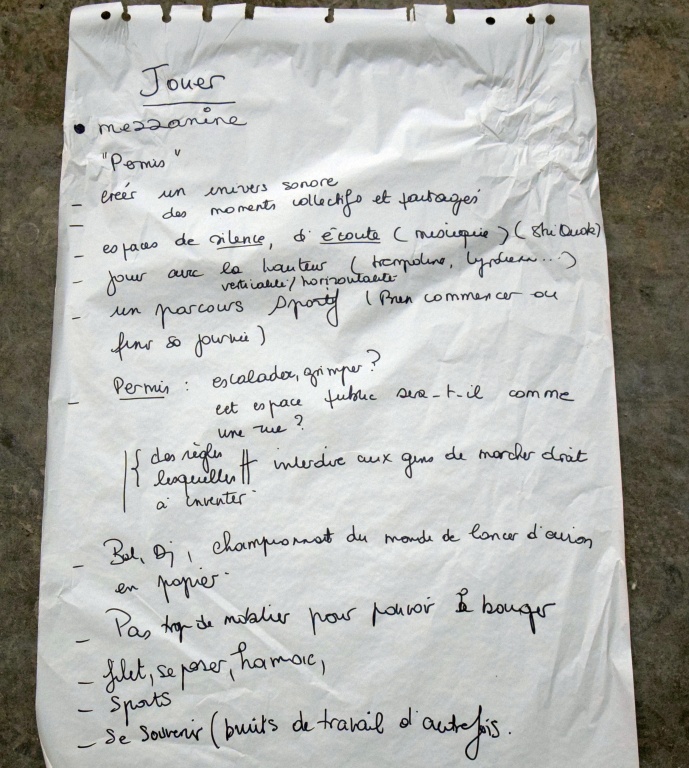 Jouer
• mezzanine
"Permis"
- créér un univers sonore
- des moments collectifs et partagés
- espaces de silence, d'écoute (musique) (
- jouer avec la hauteur (trampoline, ...)
verticalité/horizontalité
- un parcours sportif (Bien commencer ou
finir sa journée)
- Permis : escalader, grimper ?
cet espace public sera-t-il comme
une rue ?
{ des règles
lesquelles // interdire aux gens de marcher droit
à inventer.
- Bal, Dj, championnat du monde de lancer d'avion
en papier.
- Pas trop de mobilier pour pouvoir bouger
- filet, se poser, hamac,
- Sports
- Se souvenir (bruits de travail d'autrefois.